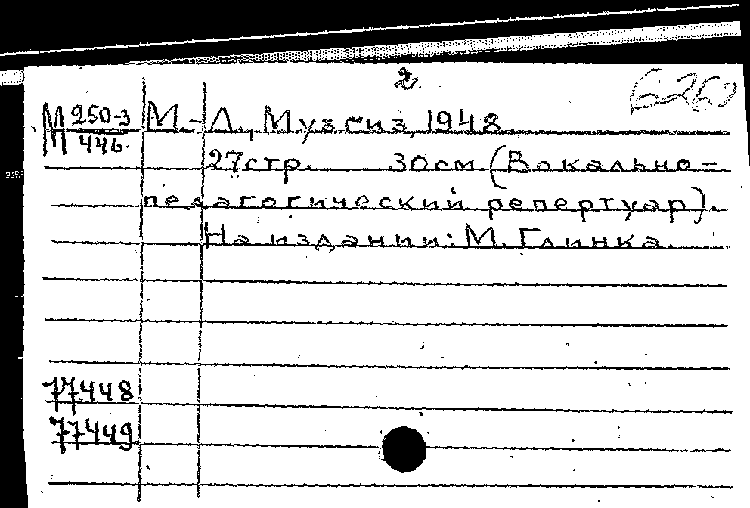 2
6260
М 250-3 М.-Л., Музгиз, 1948.
446.
27 стр. 30 см (Вокально-
педагогический репертуар).
На издании: М. Глинка.
77448
77449